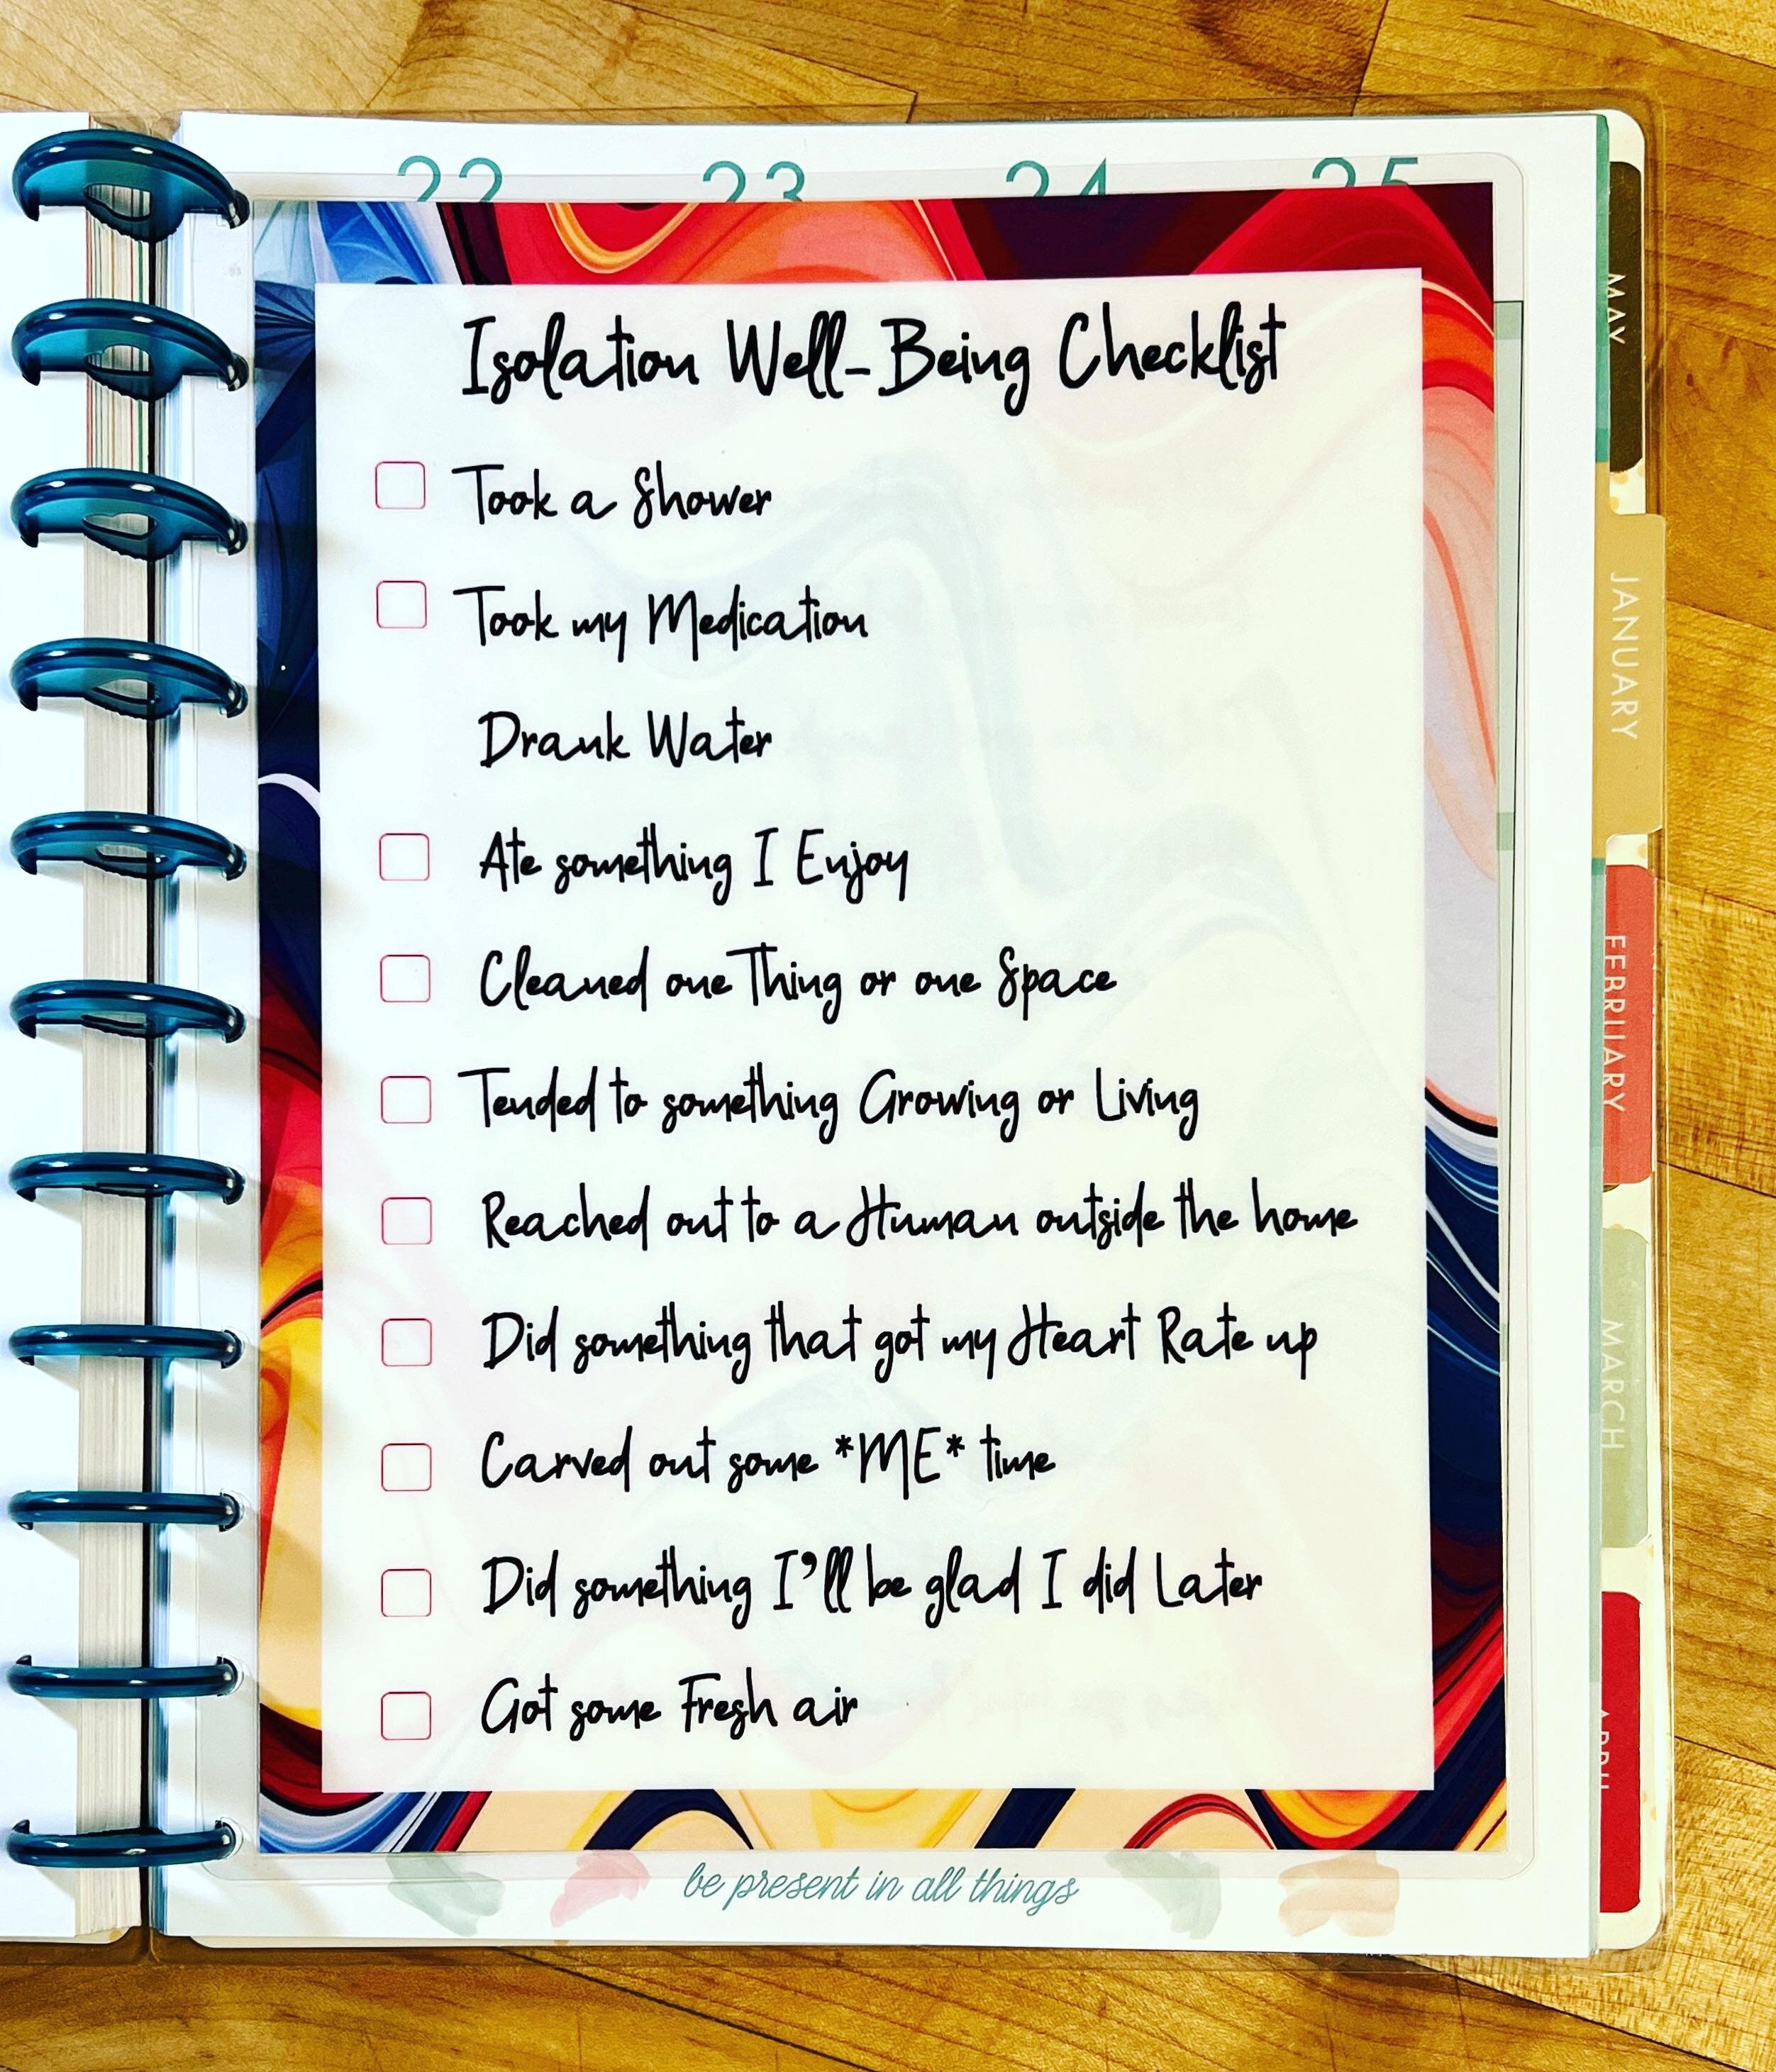 22 23 24 25
Isolation Well-Being Checklist
Took a Shower
Took my Medication
Drank Water
Ate something I Enjoy
Cleaned one Thing or one Space
Tended to something Growing or Living
Reached out to a Human outside the home
Did something that got my Heart Rate up
Carved out some *ME* time
Did something I'll be glad I did Later
Got some Fresh air
be present in all things
MAY
JANUARY
FEBRUARY
MARCH
APRIL